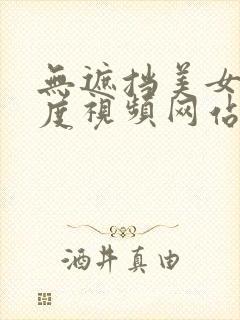 無遮挡美女
度視頻网站
酒井真由